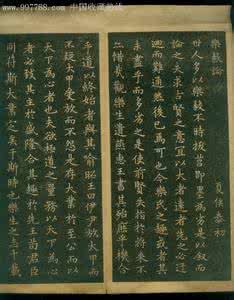 zt - 中国收藏热线
樂毅論
夏侯泰初
世人多以樂毅不時拔莒即墨為劣是以叙而
論之夫求古賢之意宜以大者遠者先之必迂
迴而難通然後已焉可也今樂氏之趣或者其
未盡乎而多劣之是使前賢失指於將來不
亦惜哉觀樂生遺燕惠王書其殆庶乎機合
乎道以終始者與其喻昭王曰伊尹放大甲而
不疑大甲受放而不怨是存大業於至公而以
天下為心者也夫欲極道之量務以天下為心
者必致其主於盛隆合其趣於先王苟君臣
同符斯大業定矣于斯時也樂生之志千載